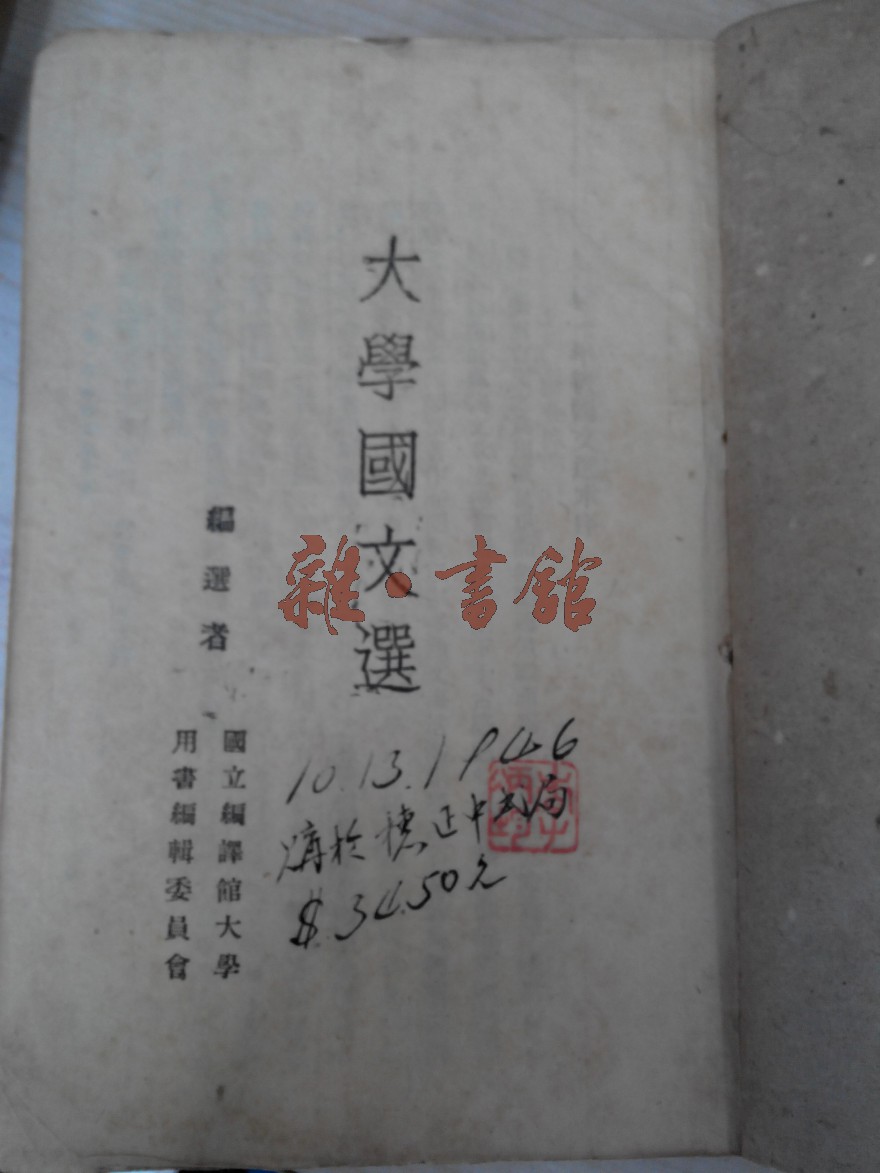 大學國文選
編選者
國立編譯館大學
用書編輯委員會
雜·書館
10.13.1946
購於穗正中书局
$34.50元